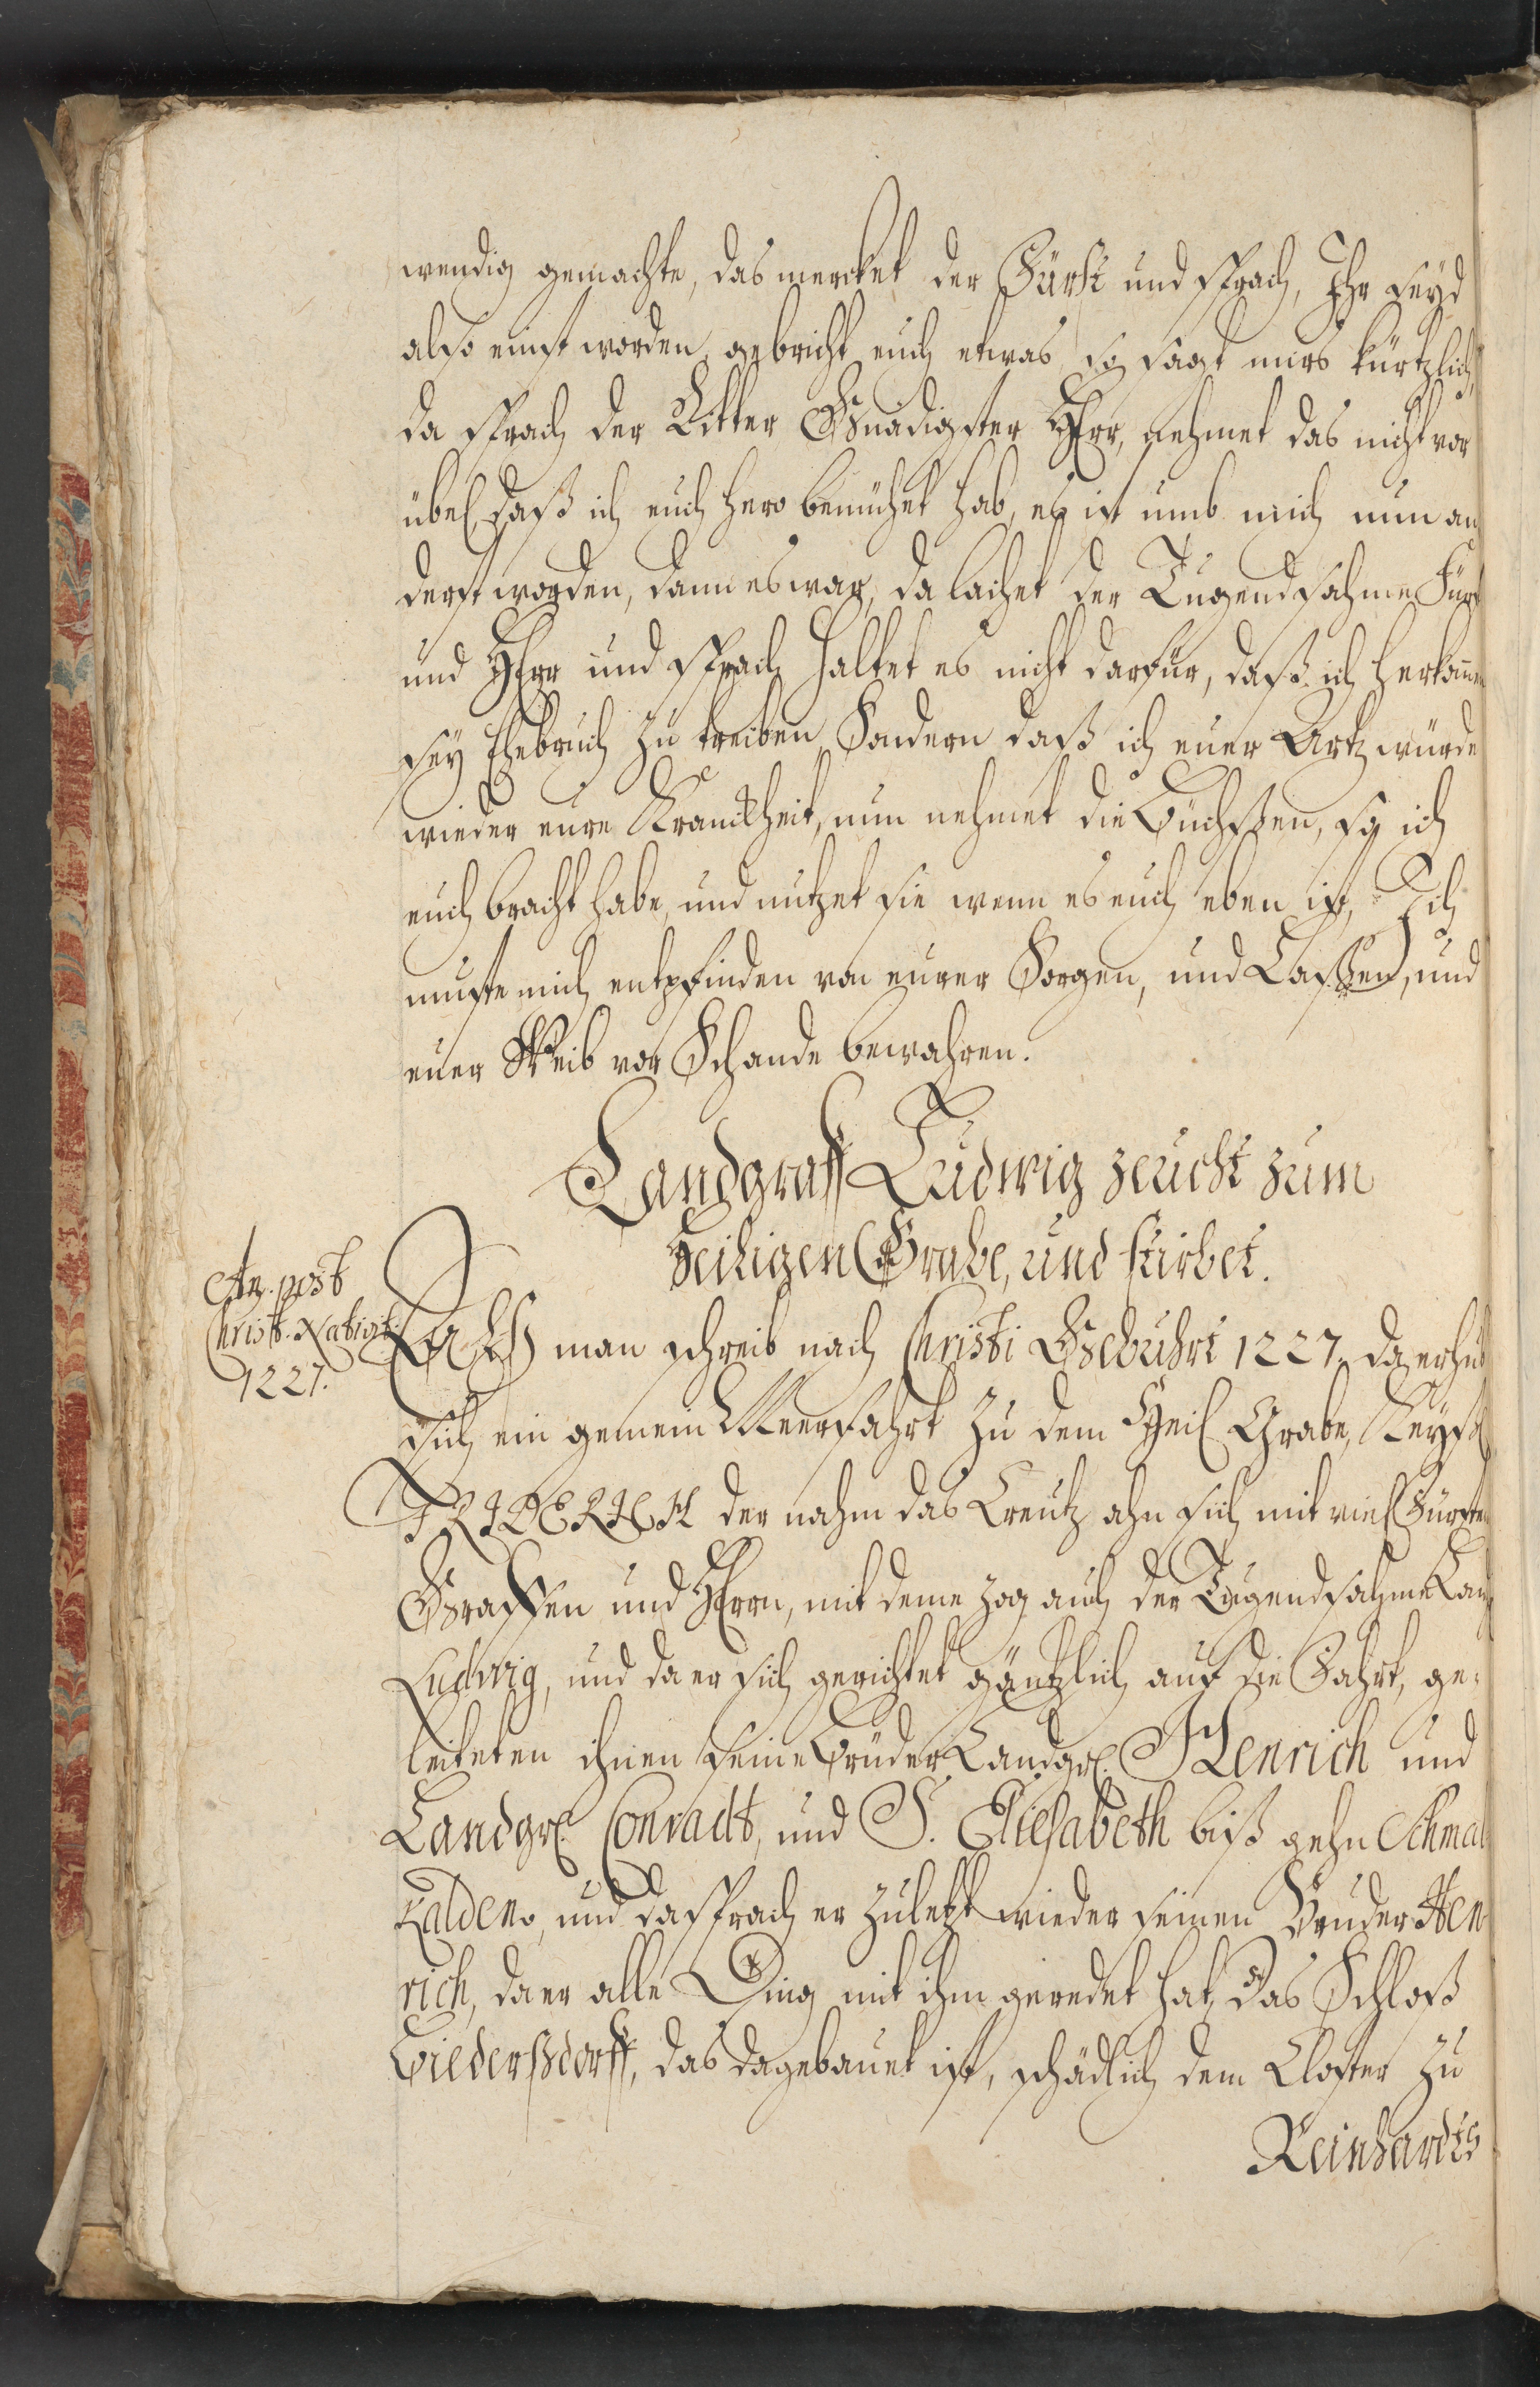 wendig gemachte, das mercket der Fürst und sprach, Ihr seyd
also ernst worden, gebricht euch etwas, so sagt mirs kürtzlich,
da sprach der Ritter Gnädigster Herr, nehmet das nicht vor
übel, daß ich euch hero bemühet hab, es ist umb mich nun an
derst worden, dann es war, da lachet der Tugendsahme Fürst
und Herr und sprach haltet es nicht darfür, daß ich herkom̅en
sey Ehebruch zu treiben, Sondern daß ich euer Artz würde
wieder eure Kranckheit, nun nehmet die Büchßen, so ich
euch bracht habe, und nutzet sie wenn es euch eben ist, Ich
muste mich entpfinden von eurer Sorgen, und Laßen, und
euer Weib vor Schande bewahren.
Landgraff Ludwig zeucht zum
Heiligen Grabe, und stirbet.
An. post
Christ. Nativit.
1227.
Alß man schreib nach Christi Gebuhrt 1227. da erhub
sich ein gemein Meerfahrt zu dem Heil. Grabe, Keyser
FRIDERICH der nahm das Creutz ahn sich mit viel Fürsten
Graffen und Herrn, mit deme zog auch der Tugendsahme Landgr.
Ludwig, und da er sich gerichtet gäntzlich auf die Fahrt, ge-
leiteten ihnen seine Brüder Landgr. Henrich und
Landgr. Conradt, und S. Eliesabeth biß gehn Schmal
Kalden, und da sprach er zuletzt wieder seinen Bruder Hen
rich, da er alle Ding mit ihm geredet hat, Das Schloß
Biederßdorff, das da gebauet ist, schädlich dem Closter zu
Reinhardts